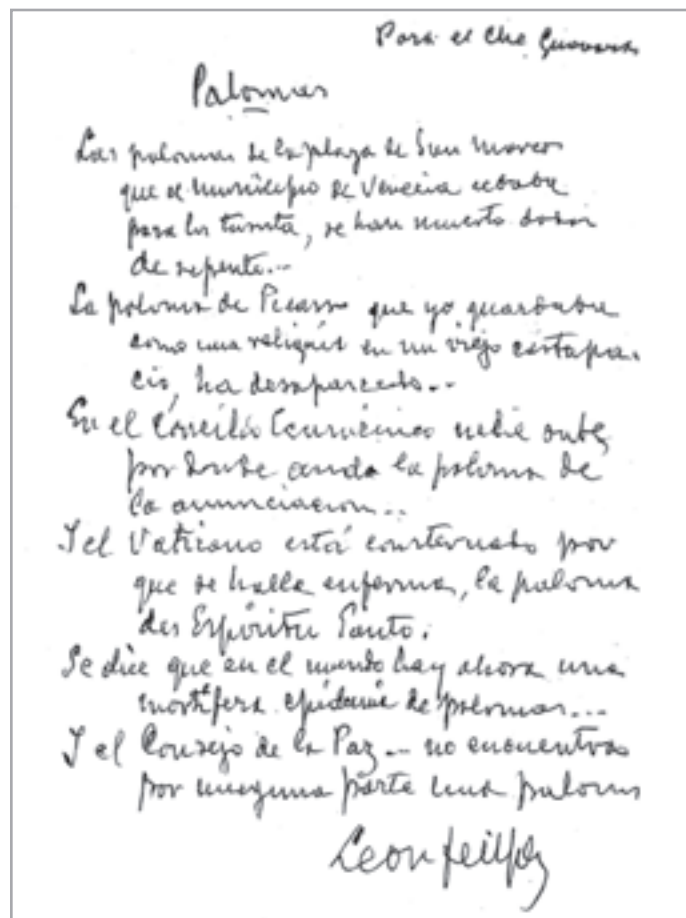 Para el Che Guevara
Palomas
Las palomas de la plaza de San Marcos
que el municipio de Venecia cebaba
para los turistas, se han muerto todas
de repente...
La paloma de Picasso que yo guardaba
como una reliquia en un viejo cartapa-
cio, ha desaparecido...
En el Concilio Ecuménico nadie sabe
por donde anda la paloma de
la anunciacion...
Y el Vaticano está consternado por
que se halla enferma, la paloma
del Espíritu Santo.
Se dice que en el mundo hay ahora una
mortífera epidemia de palomas...
Y el Consejo de la Paz... no encuentra
por ninguna parte una paloma
Leon Felipe